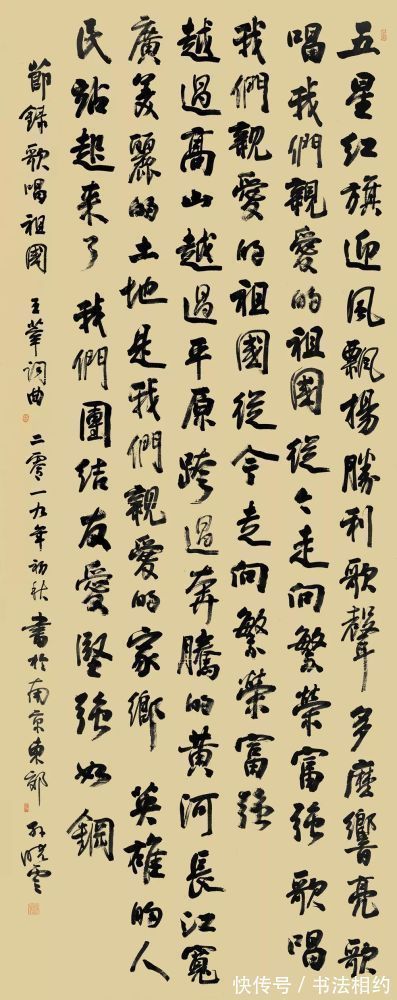 五星红旗迎風飄揚勝利歌聲多麽響亮歌
唱我們親愛的祖國從今走向繁榮富强歌唱
我們親愛的祖國從今走向繁榮富强
越過高山越過平原跨過奔騰的黄河長江寬
廣美麗的土地是我們親愛的家鄉英雄的人
民站起來了我們團结友愛堅强如鋼
節録歌唱祖國 王莘詞曲 二零一九年初秋書於南京東郊 孫曉雲
快传号 / 书法相约